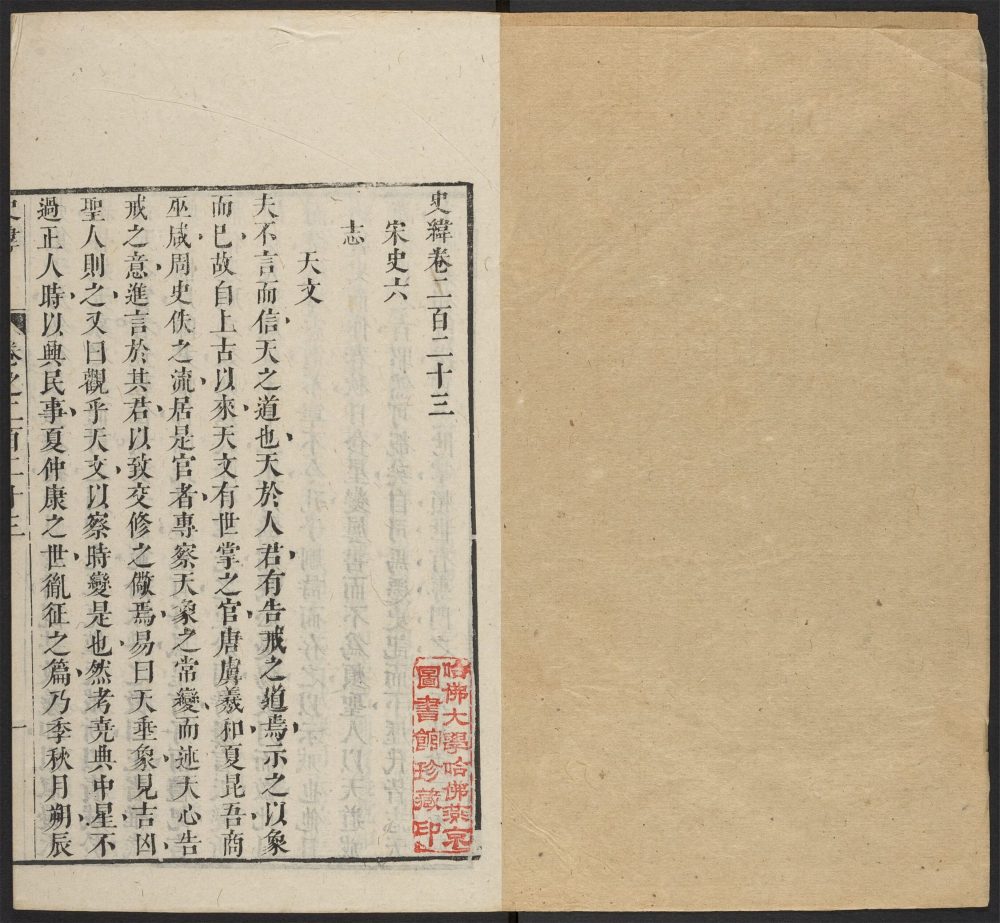 史緯卷二百二十三
宋史六
志
天文
夫不言而信天之道也天於人君有告戒之道焉示之以象
而已故自上古以來天文有世掌之官唐虞羲和夏昆吾商
巫咸周史佚之流居是官者專察天象之常變而述天心告
戒之意進言於其君以致交修之儆焉易曰天垂象見吉凶
聖人則之又曰觀乎天文以察時變是也然考堯典中星不
過正人時以興民事夏仲康之世胤征之篇乃季秋月朔辰
史緯
卷之二百二十三
一
哈佛大學哈佛燕京
圖書館珍藏印